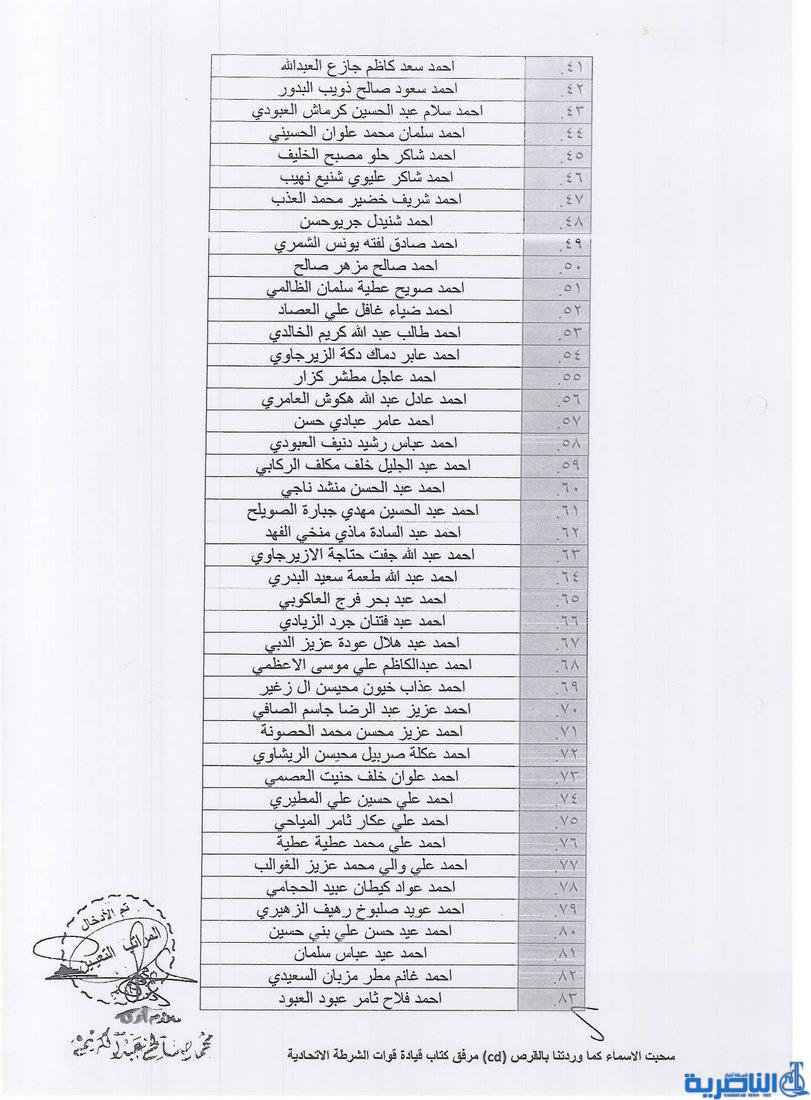 ٤١. احمد سعد كاظم جازع العبدالله
٤٢. احمد سعود صالح ذويب البدور
٤٣. احمد سلام عبد الحسين كرماش العبودي
٤٤. احمد سلمان محمد علوان الحسيني
٤٥. احمد شاكر حلو مصبح الخليف
٤٦. احمد شاكر عليوي شنيع نهيب
٤٧. احمد شريف خضير محمد العذب
٤٨. احمد شنيدل جريوحسن
٤٩. احمد صادق لفته يونس الشمري
٥٠. احمد صالح مزهر صالح
٥١. احمد صويح عطية سلمان الظالمي
٥٢. احمد ضياء غافل علي العصاد
٥٣. احمد طالب عبد الله كريم الخالدي
٥٤. احمد عابر دماك دكة الزيرجاوي
٥٥. احمد عاجل مطشر كزار
٥٦. احمد عادل عبد الله هكوش العامري
٥٧. احمد عامر عبادي حسن
٥٨. احمد عباس رشيد دنيف العبودي
٥٩. احمد عبد الجليل خلف مكلف الركابي
٦٠. احمد عبد الحسن منشد ناجي
٦١. احمد عبد الحسين مهدي جبارة الصويلح
٦٢. احمد عبد السادة ماذي منخي الفهد
٦٣. احمد عبد الله جفت حتاجة الازيرجاوي
٦٤. احمد عبد الله طعمة سعيد البدري
٦٥. احمد عبد بحر فرج العاكوبي
٦٦. احمد عبد فتنان جرد الزيادي
٦٧. احمد عبد هلال عودة عزيز الدبي
٦٨. احمد عبدالكاظم علي موسى الاعظمي
٦٩. احمد عذاب خيون محيسن ال زغير
٧٠. احمد عزيز عبد الرضا جاسم الصافي
٧١. احمد عزيز محسن محمد الحصونة
٧٢. احمد عكلة صربيل محيسن الريشاوي
٧٣. احمد علوان خلف حنيت العصمي
٧٤. احمد علي حسين علي المطيري
٧٥. احمد علي عكار ثامر المياحي
٧٦. احمد علي محمد عطية عطية
٧٧. احمد علي والي محمد عزيز الغوالب
٧٨. احمد عواد كيطان عبيد الحجامي
٧٩. احمد عويد صلبوخ رهيف الزهيري
٨٠. احمد عيد حسن علي بني حسين
٨١. احمد عيد عباس سلمان
٨٢. احمد غانم مطر مزبان السعيدي
٨٣. احمد فلاح ثامر عبود العبود
تم الأدخال
المراتب التعيين
محمد صالح عبد الكريم
سحبت الاسماء كما وردتنا بالقرص (cd) مرفق كتاب قيادة قوات الشرطة الاتحادية
شبكة اخبار
الناصرية
NASIRIYAH NEWS NET